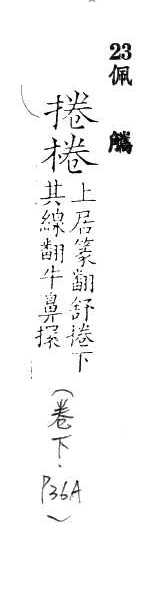 23佩觿
捲棬上居篆翻舒捲下
其綠翻牛鼻棬
(卷下.P36A)